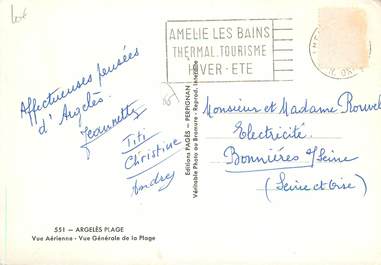 AMELIE LES BAINS
THERMAL. TOURISME
HIVER - ETE
Affectueuses pensées
d'Argelès.
Jeannette
Titi
Christine
Andrey
Editions PAGÈS - PERPIGNAN
Véritable Photo au Bromure - Reprod. Interdite
Monsieur et Madame
Electricité.
Bonnières s/Seine
(Seine et Oise)
551 — ARGELÈS PLAGE
Vue Aérienne - Vue Générale de la Plage